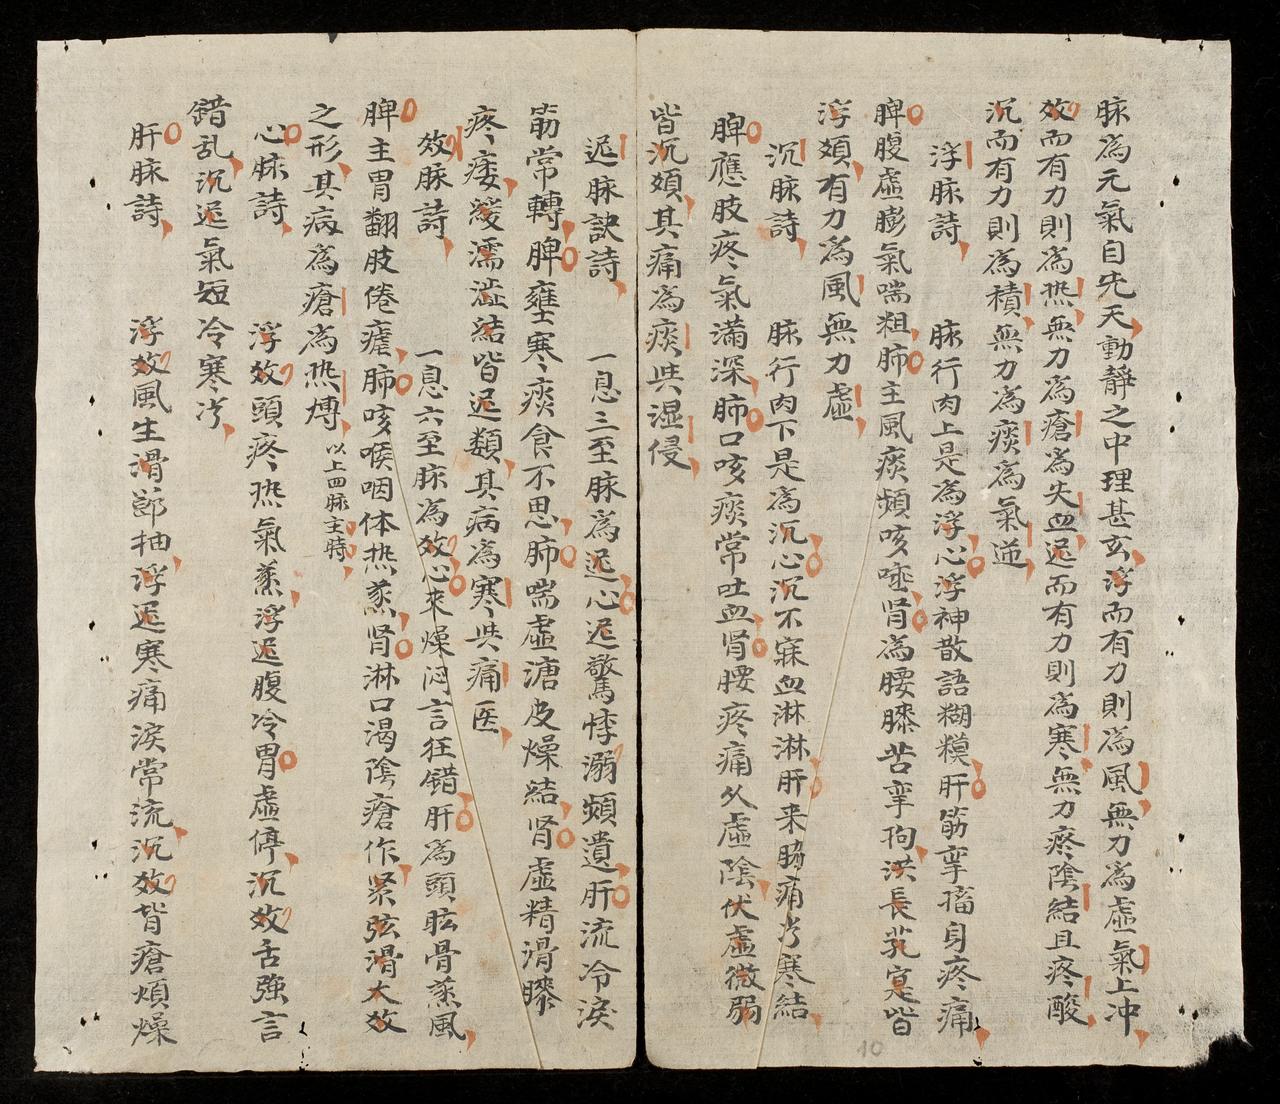 脉為元氣自先天動靜之中理甚玄浮而有力則為風無力為虛氣上冲
效而有力則為热無力為瘡為失血迟而有力則為寒無力疼陰結且疼酸
沉而有力則為積無力為痰為氣逆
浮脉詩 脉行肉上是為浮心浮神散語糊糢肝筋挛搐身疼痛
脾腹虛膨氣喘粗肺主風痰頻咳唾肾為腰膝苦挛拘洪長芤寔皆
浮類有力為風無力虛
沉脉詩 脉行肉下是為沉心沉不寐血淋淋肝来脇痛 寒結
脾應肢疼氣滿深肺口咳痰常吐血肾腰疼痛久虛陰伏虛微弱
皆沉類其痛為痰共湿侵
迟脉訣詩 一息三至脉為迟心迟驚悸溺頻遺肝流冷淚
筋常轉脾壅寒痰食不思肺喘虛溏皮燥結肾虛精滑膝
疼痿緩濡澁結皆迟類其病為寒共痛医
效脉詩 一息六至脉為效心来燥闷言狂錯肝為頭眩骨蒸風
脾主胃翻肢倦瘧肺咳喉咽体热蒸肾淋口渴陰瘡作紧弦滑大效
之形其病為瘡為热
以上四脉主時
心脉詩 浮效頭疼热氣蒸浮迟腹冷胃虛停沉效舌強言
錯乱沉迟氣短冷寒
肝脉詩 浮效風生滑節抽浮迟寒痛淚常流沉效皆瘡煩燥
10